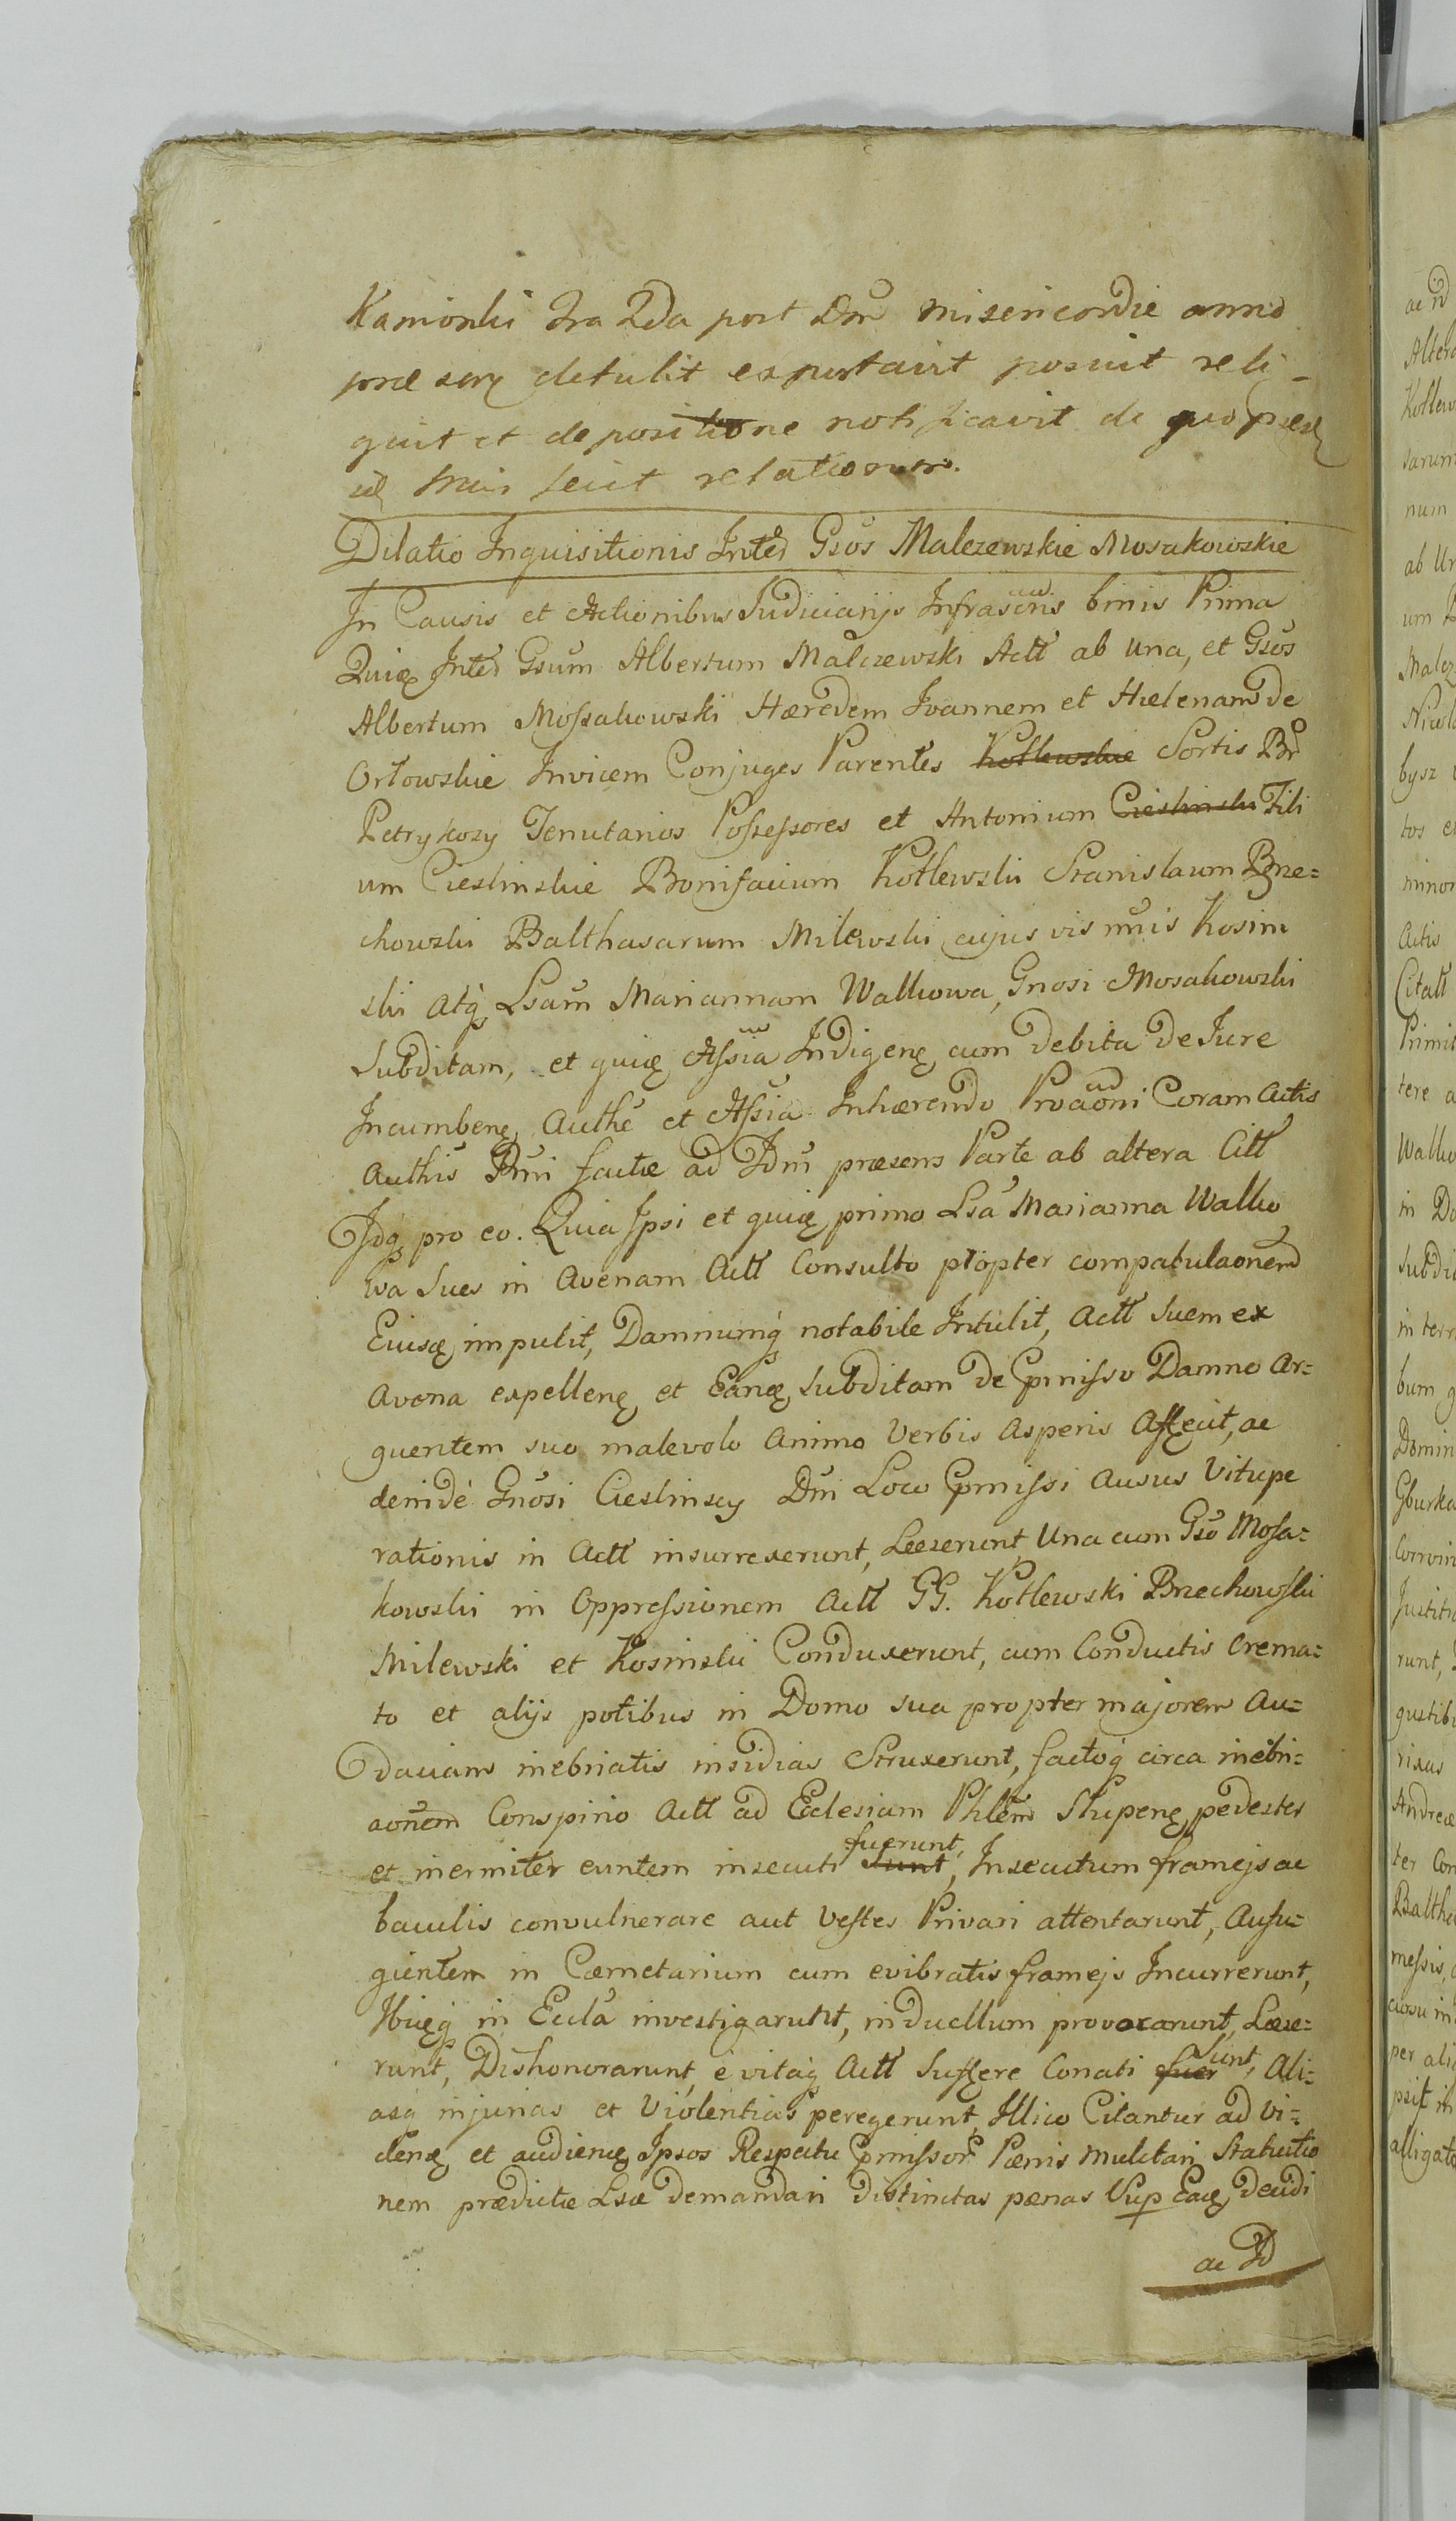 Kamionki Fra 2da post Dm̃ misericordie anno
præsen detulit exportavit posuit reli-
quit et depositione notificavit de quo præs
id Min fecit relationem.
Dilatio Inquisitionis Inter Gsos Malczewskie Mosakowskie
In Causis et Actionibus Judiciarijs Infrascris binis Prima
Quiq Inter Gsum Albertum Malczewski Actt ab una, et Gsos
Albertum Mossakowski Hæredem Joannem et Hælenam de
Orłowskie Invicem Conjuges Parentes Kotlewskie Sortis Br
Petrykozy Tenutarios Possessores et Antonium Cieslinski Fili
um Cieslinskie Bonifacium Kotlewski Stanislaum Brze=
chowski Balthasarum Milewski cujus vis nũis Kosin
ski atq Lsam Mariannam Walkowa, Gnosi Mosakowski
Subditam, et quiq Assia Indigenę cum debita de Jure
Incumbenę, Authe et Assia Inhærendo Procãoni Coram Actis
Authis Pñti factæ ad Idm̃ præsens Parte ab altera Citt
Idq pro eo. Quia Ipsi et quiq primo Lsa Marianna Walko
wa Sues in Avenam Actt Consulto propter compatulaonem
Eiusq impulit, Damnumq notabile Intulit, Actt Suem ex
Avena expellenę et Eanq Subditam de Cpmisso Damno Ar=
guentem suo malevolo Animo Verbis Asperis Affecit, ac
deinde Gnosi Cieslinscy Dni Loco Cpmissi Ausus Vitupe
rationis in Actt insurrexerunt, Leeserunt, Una cum Gso Mosa=
kowski in Oppressionem Actt GG. Kotlewski Brzechowski
Milewski et Kosinski Conduxerunt, cum Conductis Crema=
to et alijs potibus in Domo sua propter majorem Au=
daciam inebriatis insidias Struxerunt, factoq circa inebri=
aonem Conspirio Actt ad Eclesiam Phlem Slupenę pedester
et inermiter euntem insecuti fuerunt,
Sunt, Insecutum framejs ac
baculis convulnerare aut Vestes Privari attentarunt, Aufu=
gientem in Cæmetarium cum evibratis framejs Incurrerunt,
Ibiqq in Eccla investigarunt, in duellum provocarunt, Læse=
runt, Dishonorarunt, è vitaq Actt Suffere Conati fuer Sunt, Ali=
asq injurias et Violentias peregerunt, Illico Citantur ad Vi=
denę et audienę Ipsos Respectu Cpmissor Pænis mulctari Statutio
nem prædictæ Lsæ demandari distinctas pænas Vup Eaq decidi
ac Id